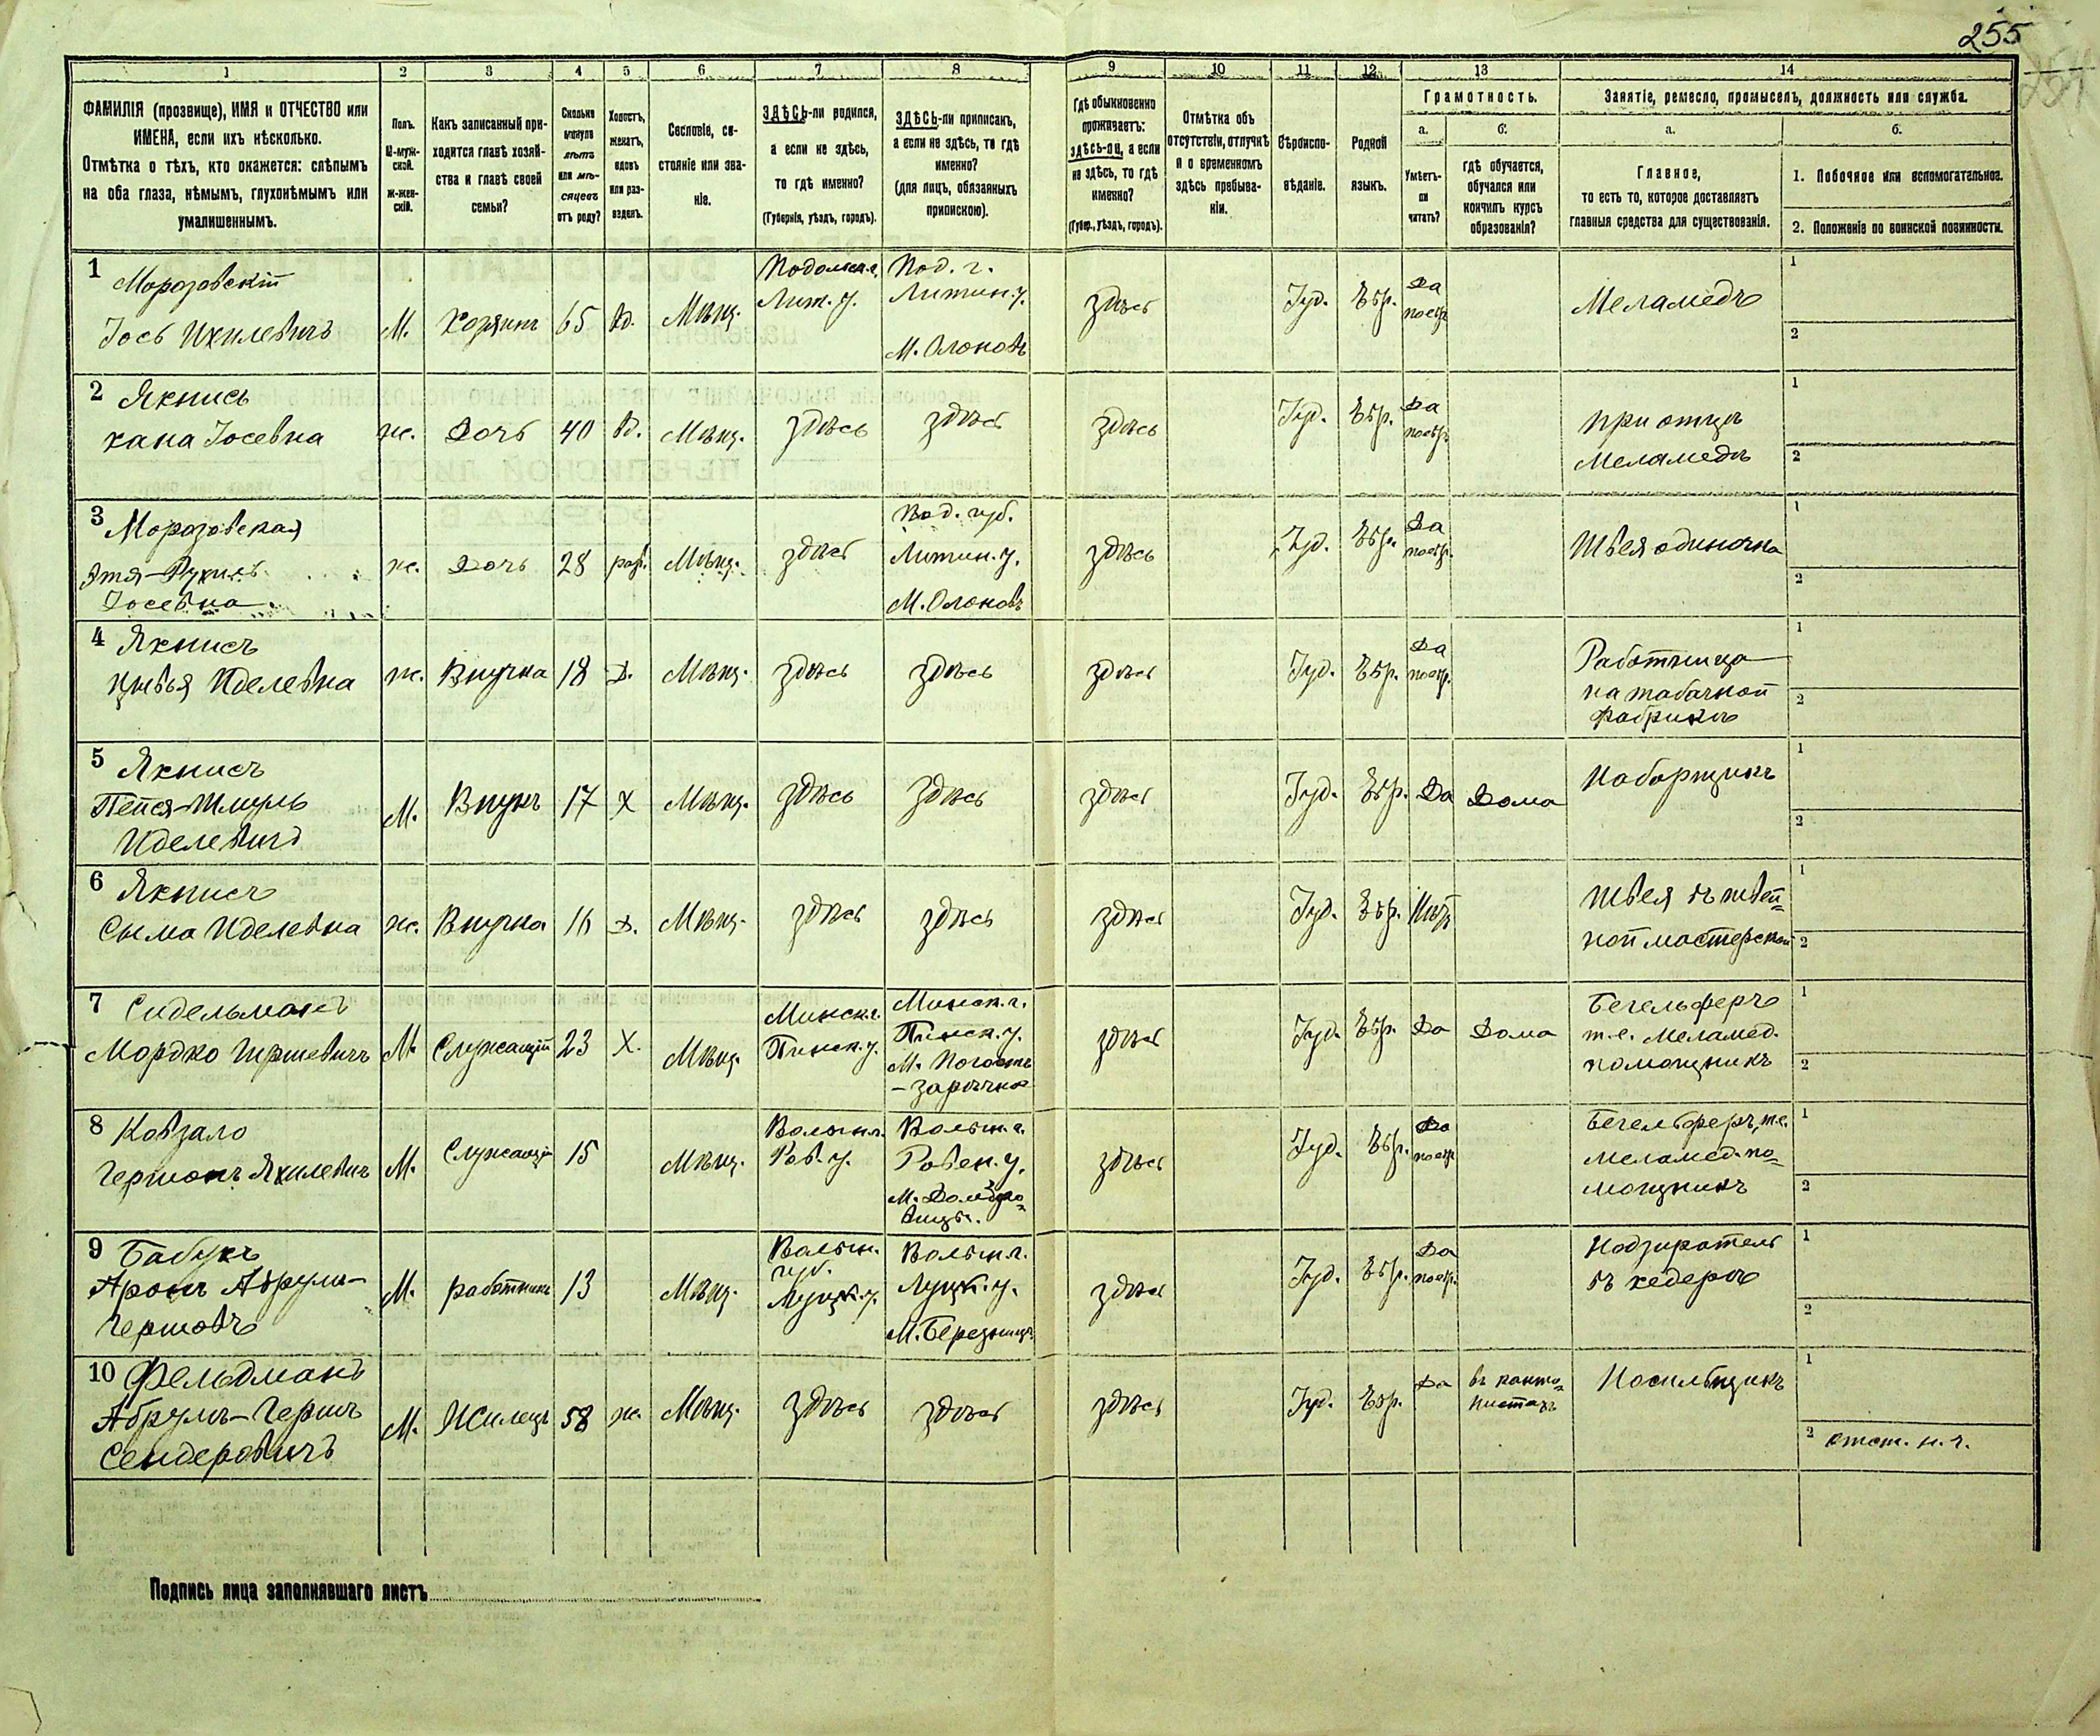 255
1 2 3 4 5 6 7 8 9 10 11 12 13 14
ФАМИЛІЯ (прозвище), ИМЯ и ОТЧЕСТВО или
ИМЕНА, если ихъ нѣсколько.
Отмѣтка о тѣхъ, кто окажется: слѣпымъ
на оба глаза, нѣмымъ, глухонѣмымъ или
умалишеннымъ.
Полъ.
М-муж-
ской.
Ж-жен-
скій.
Какъ записанный при-
ходится главѣ хозяй-
ства и главѣ своей
семьи?
Сколько
минуло
лѣтъ
или мѣ-
сяцевъ
отъ роду?
Холостъ,
женатъ,
вдовъ
или раз-
веденъ.
Сословіе, со-
стояніе или зва-
ніе.
ЗДѢСЬ-ли родился,
а если не здѣсь,
то гдѣ именно?
(Губернія, уѣздъ, городъ).
ЗДѢСЬ-ли приписанъ,
а если не здѣсь, то гдѣ
именно?
(для лицъ, обязанныхъ
припискою).
Гдѣ обыкновенно
проживаетъ:
здѣсь-ли, а если
не здѣсь, то гдѣ
именно?
(Губер., уѣздъ, городъ).
Отмѣтка объ
отсутствіи, отлучкѣ
и о временномъ
здѣсь пребыва-
ніи.
Вѣроиспо-
вѣданіе.
Родной
языкъ.
Грамотность.
а.
Умѣетъ-
ли
читать?
б.
гдѣ обучается,
обучался или
кончилъ курсъ
образованія?
Занятіе, ремесло, промыселъ, должность или служба.
а.
Главное,
то есть то, которое доставляетъ
главныя средства для существованія.
б.
1. Побочное или вспомогательное.
2. Положеніе по воинской повинности.
1 Морозовскій
Іось Ихилевичъ
М.
Хозяинъ
65
вд.
Мѣщ.
Подольск. г.
Лит. у.
Под. г.
Литин. у.
здѣсь
Іуд.
Евр.
Да
по евр.
Меламедъ
1
2
2 Якнисъ
Хана Іосевна
ж.
Дочь
40
вд.
Мѣщ.
здѣсь
здѣсь
здѣсь
Іуд.
Евр.
Да
по евр.
при отцѣ
Меламедѣ
1
2
3 Морозовская
Этя-Рухль
Іосевна
ж.
Дочь
28
Мѣщ.
здѣсь
Под. губ.
Литин. у.
здѣсь
Іуд.
Евр.
Да
по евр.
Швея одиночка
1
2
4 Якнисъ
Цивья Иделевна
ж.
Внучка
18
Д.
Мѣщ.
здѣсь
здѣсь
здѣсь
Іуд.
Евр.
Да
по евр.
Работница
на табачной
фабрикѣ
1
2
5 Якнисъ
Пейся-Шмуль
Иделевичъ
М.
Внукъ
17
Х
Мѣщ.
здѣсь
здѣсь
здѣсь
Іуд.
Евр.
Да
Дома
Наборщикъ
1
2
6 Якнисъ
Сыма Иделевна
ж.
Внучка
16
Д.
Мѣщ.
здѣсь
здѣсь
здѣсь
Іуд.
Евр.
Нѣтъ
Швея въ швей=
ной мастерской
1
2
7 Сидельманъ
Мордко Гиршевичъ
М.
Служащій
23
Х.
Мѣщ.
Минск. г.
Пинск. у.
Минск. г.
Пинск. у.
М. Погостъ
-зарѣчно
здѣсь
Іуд.
Евр.
Да
Дома
Бегельферъ
т.е. Меламед.
помощникъ
1
2
8 Ковзало
Гершонъ Яхилевичъ
М.
Служащій
15
Мѣщ.
Волын. г.
Ров. у.
Волын. г.
Ровен. у.
М. Домбро=
вицы.
здѣсь
Іуд.
Евр.
Да
по евр.
Бегельферъ, т.е.
меламед. по=
мощникъ
1
2
9 Бабукъ
Аронъ Аврумъ-
Гершовъ
М.
работникъ
13
Мѣщ.
Волын.
губ.
Луцк. у.
Волын. г.
Луцк. у.
М. Березницъ
здѣсь
Іуд.
Евр.
Да
по евр.
Надзиратель
въ хедерѣ
1
2
10 Фельдманъ
Аврумъ-Гершъ
Сендеровичъ
М.
Жилецъ
58
ж.
Мѣщ.
здѣсь
здѣсь
здѣсь
Іуд.
Евр.
Да
въ канто=
нистахъ
Носильщикъ
1
2 отст. н. ч.
Подпись лица заполнявшаго листъ